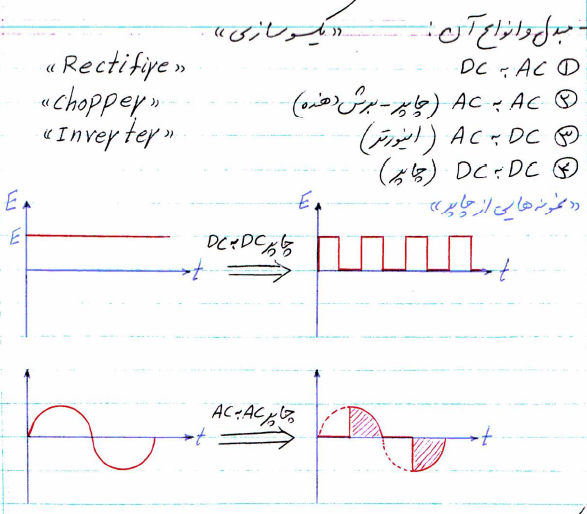 - مبدل و انواع آن : «یکسوسازی»
① AC به DC «Rectifire»
② AC به AC (چاپر-برش دهنده) «Chopper»
③ DC به AC (اینورتر) «Inverter»
④ DC به DC (چاپر)
«نمونه هایی از چاپر»
E
E
t
چاپر DC به DC
E
t
t
چاپر AC به AC
t